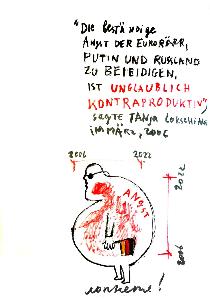 "Die beständige
Angst der Europäer,
Putin und Russland
zu beleidigen,
ist unglaublich
kontraproduktiv",
sagte Tanja Lokschina
im März, 2006
2006 2022
Angst
2022
2006